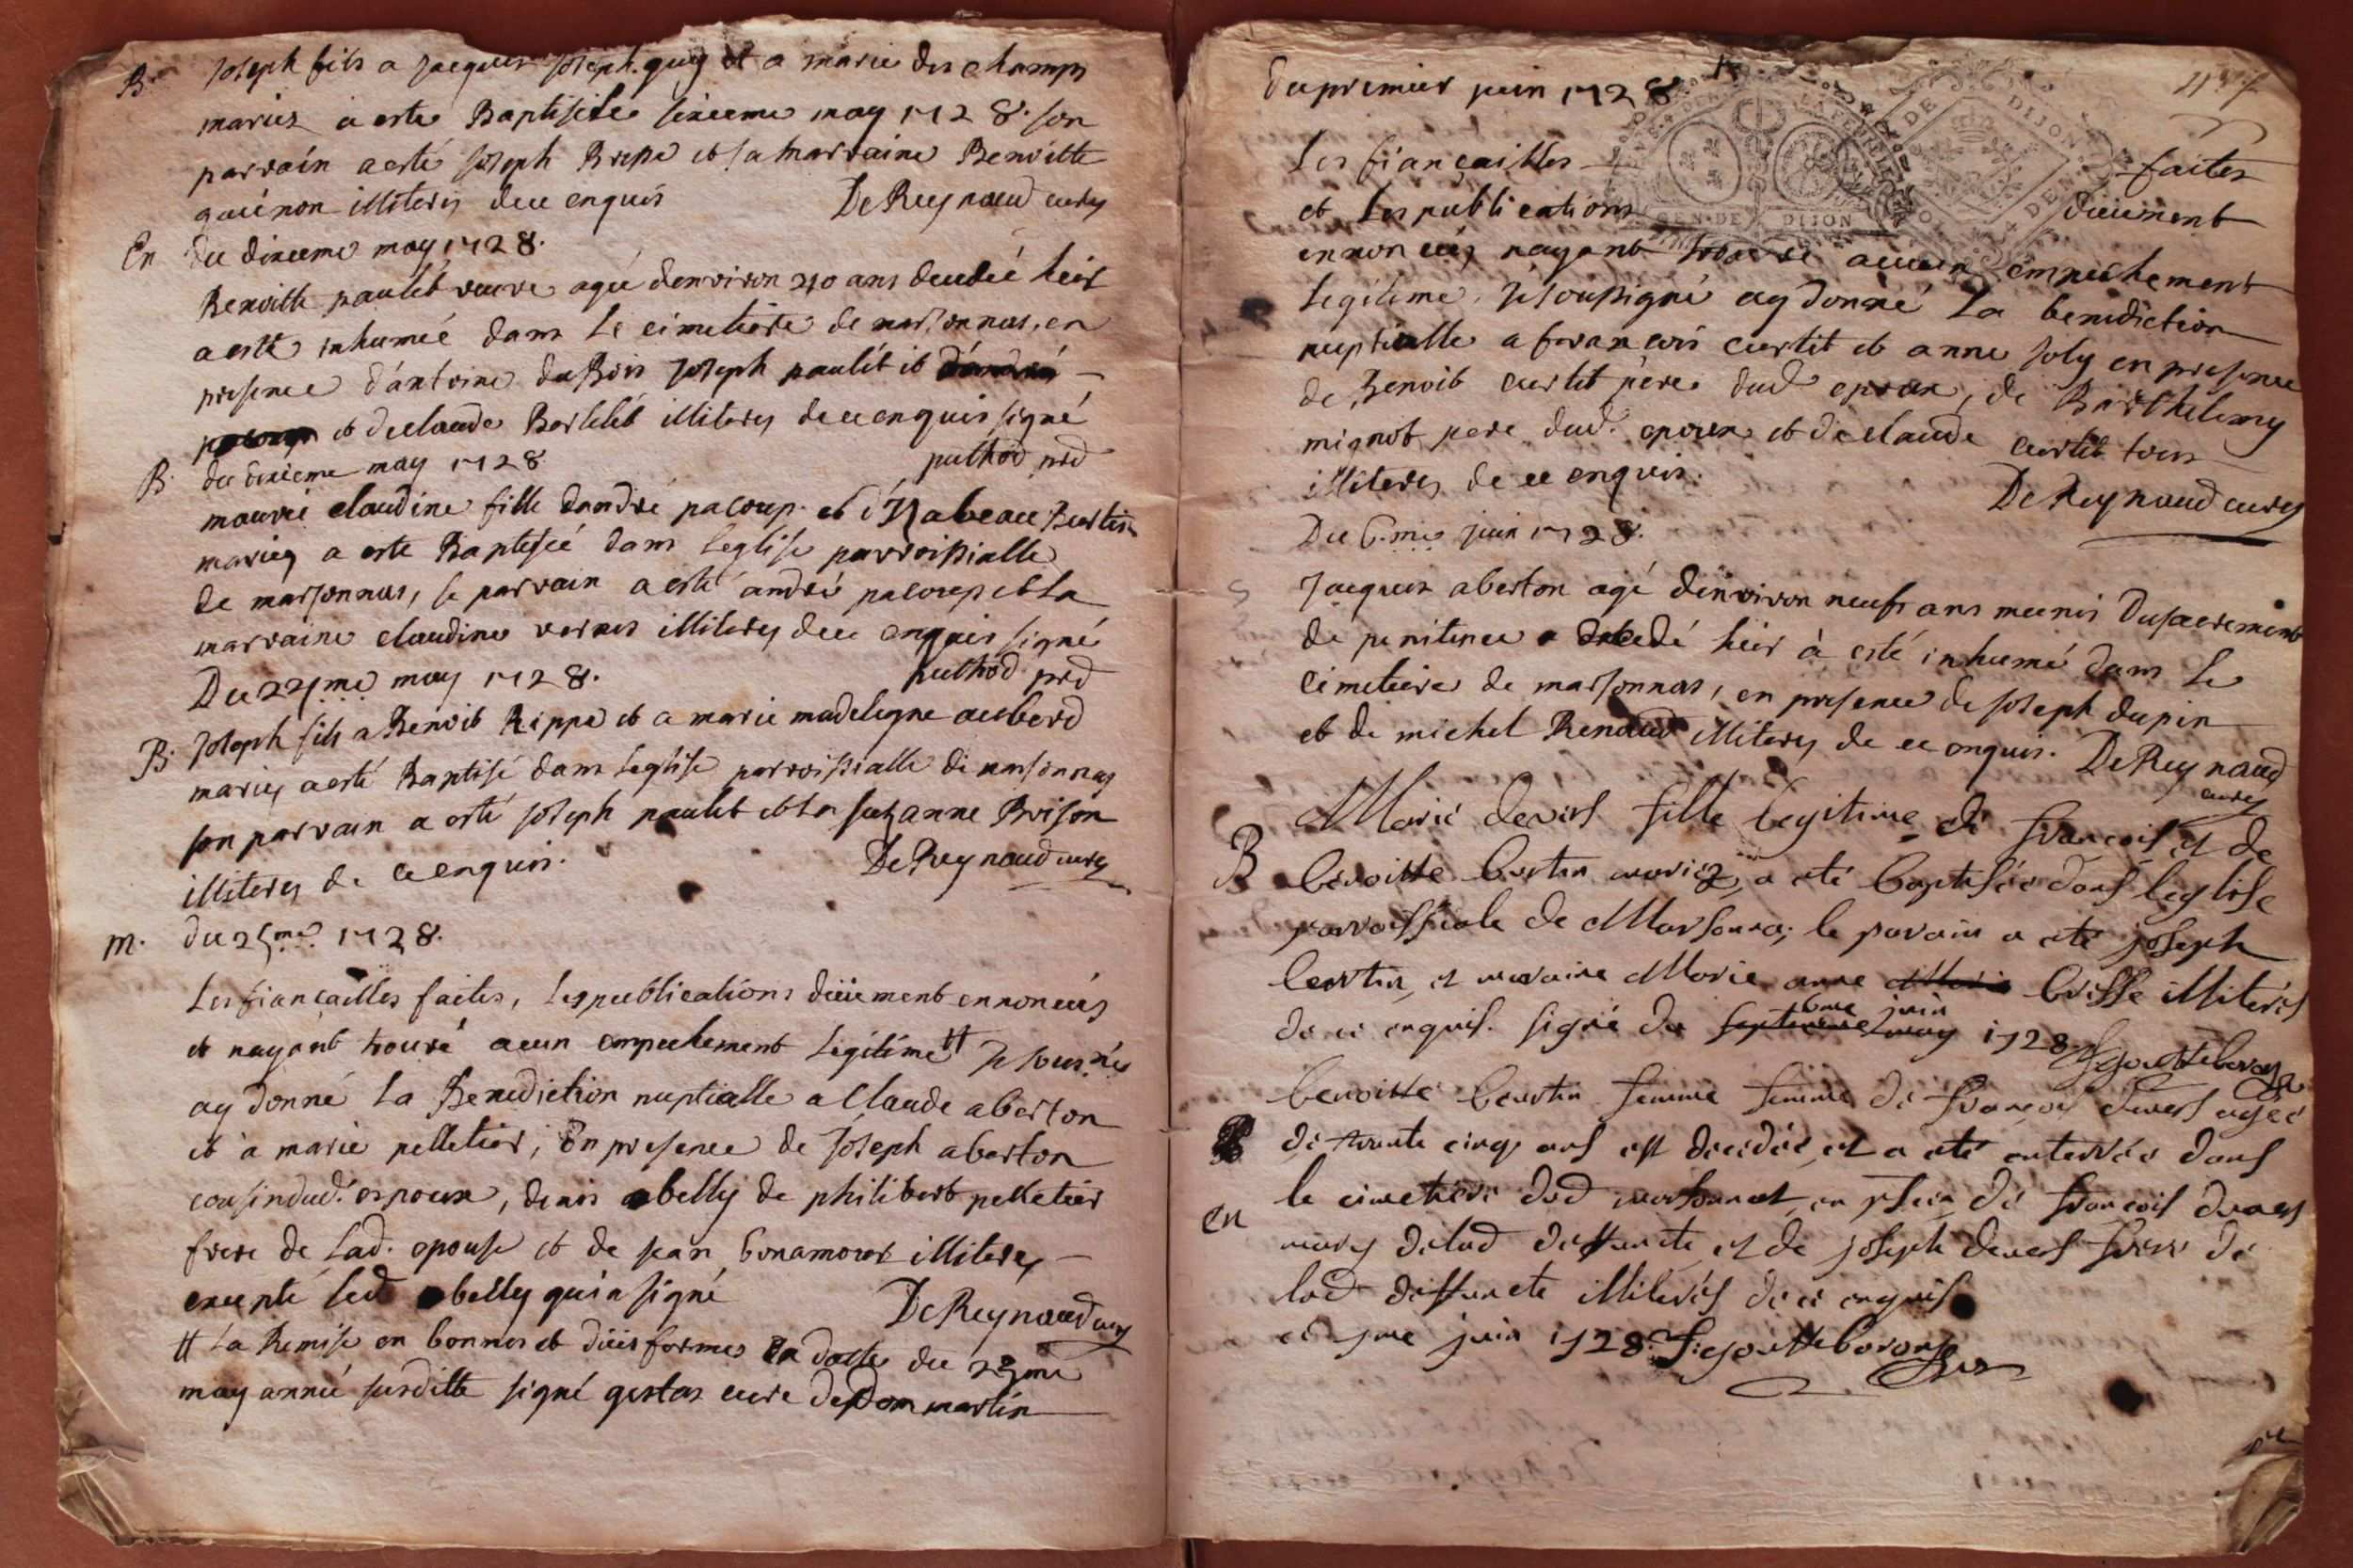 B. Joseph fils a jacques joseph guy et a marie des champs
mariez a esté Baptiséee sixieme may 1728. son
parrain a esté joseph Brepe et sa marraine Benoitte
guénon illiterez dece enquis De Reynaud curez
En du dixieme may 1728.
Benoitte paulet veuve agée denviron ans decedée hier
a esté inhumée dans le cimetiere de marsonnas, en
presence d'antoine duBois joseph paulet et
et declaude Bertelet illiterez dece enquis signé
B. du dixieme may 1728 puthod prd
claudine fille dandré pacoup et d'Izabeau Burtin
mariez a esté Baptisée dans leglise parroissialle
de marsonnas, le parrain a esté andré pacoup et la
marraine claudine vernes illiterez dece enquis signé
Du 22me may 1728. puthod prd
B. Joseph fils a Benoit Rippe et a marie madelegne
mariez a esté Baptisé dans leglise parroissialle de marsonnas
son parrain a esté joseph paulet et la suzanne Brison
illiterez de ce enquis. De Reynaud curez
m. du 25me 1728.
Les fiançailles faites, les publications düement ennoncés
et nayant trouvé acun empechement legitime ++ je sous.né
ay donné la Benediction nuptialle a Claude aberton
et a marie pelletier, En presence de Joseph aberton
cousin dud. espoux, denis abelly de philibert pelletier
frere de lad. epouse et de jean bonamour illiterez
excepté led abelly qui a signé De Reynaud curez
++ La Remise en bonnes et düés formes en datte du 23me
may année susditte signé gestas curé de Dommartin
du premier juin 1728
GEN. DE DIJON
DE DIJON
Les fiançailles faites
et les publications düement
ennoncées nayant trouvé aucun empechement
legitime, je soussigné ay donné la benediction
nuptialle a francois curtet et anne joly en presence
de Benoit curtet père dud epoux, de Barthelemy
mignot pere dud. epoux et de claude curtet tous
illiterez de ce enquis.
De Reynaud curez
Du 6.me juin 1728.
Jacques aberton agé denviron neufs ans munis du sacrement
de penitence a decedé hier à esté inhumé dans le
cimetiere de marsonnas, en presence de joseph dupin
et de michel Renaud illiterez de ce enquis. De Reynaud
curez
Marie devers fille legitime de francois et de
B benoitte burtin mariez, a eté baptisée dans leglise
parroissiale de Marsona; le parain a eté joseph
burtin, et maraine Marie anne Marie brisse illiterés
6me juin
de ce enquis. signé du septieme may 1728
benoitte burtin femme femme de francois devers agée
de trente cinq ans est decedée, et a eté enterrée dans
en le cimetiere dud marsonnat, en de francois devers
mary delad deffuncte et de joseph devers frere de
lad deffuncte illiterés de ce enquis
ce 7me juin 1728.